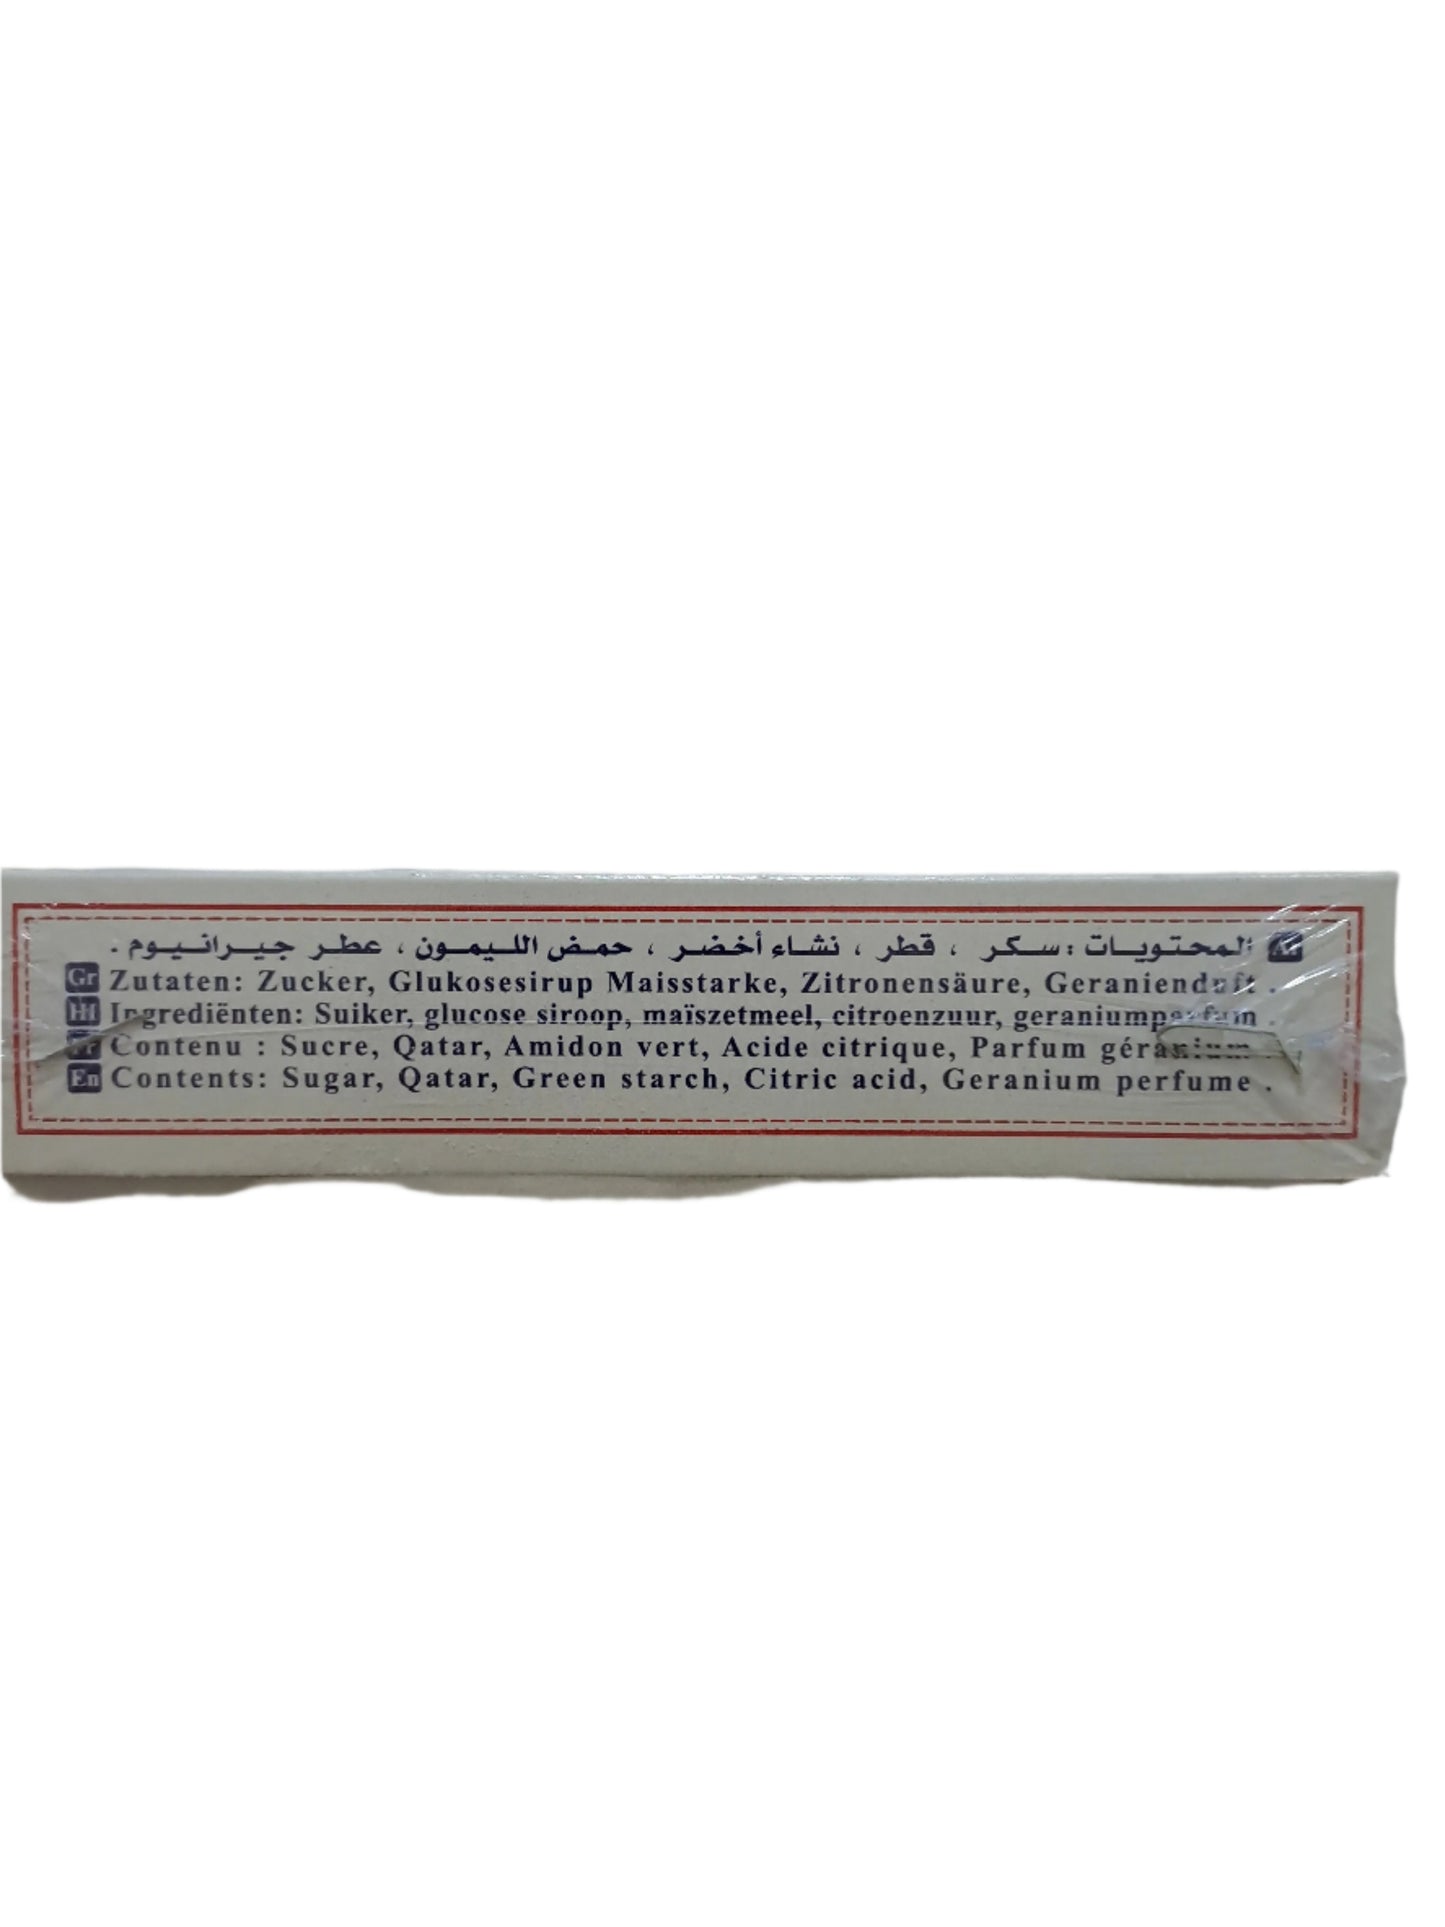 المحتويات : سكر ، قطر ، نشاء أخضر ، حمض الليمون ، عطر جيرانيوم .
Gr Zutaten: Zucker, Glukosesirup Maisstarke, Zitronensäure, Geranienduft .
Hl Ingrediënten: Suiker, glucose siroop, maïszetmeel, citroenzuur, geraniumparfum .
Fr Contenu : Sucre, Qatar, Amidon vert, Acide citrique, Parfum géranium .
En Contents: Sugar, Qatar, Green starch, Citric acid, Geranium perfume .